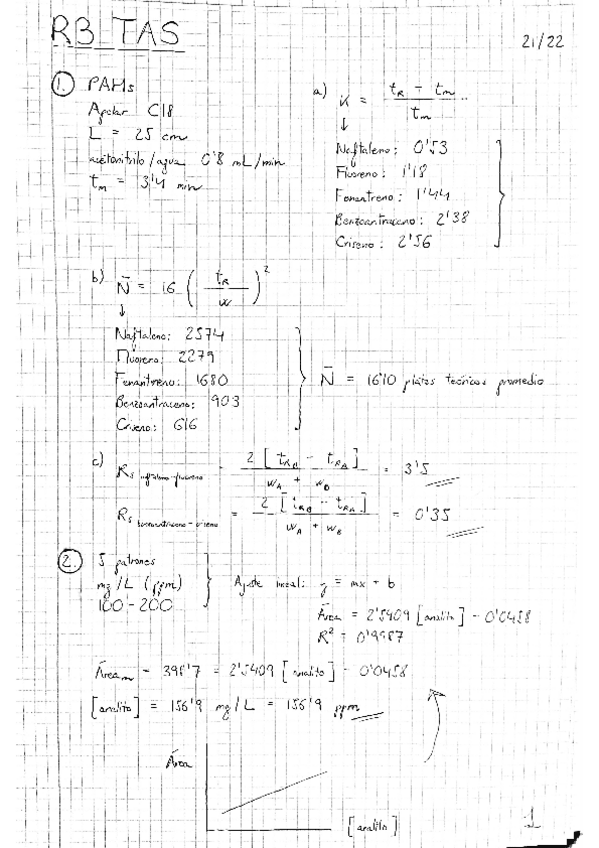 RB TAS
21/22
1. PAHs
Apolar C18
L = 25 cm
acetonitrilo/agua 0'8 mL/min
tm = 3'4 min
a) K = (tR - tm) / tm
↓
Naftaleno: 0'53
Fluoreno: 1'18
Fenantreno: 1'44
Benzoantraceno: 2'38
Criseno: 2'56
b) N̄ = 16 (tR / w)²
↓
Naftaleno: 2574
Fluoreno: 2279
Fenantreno: 1680
Benzoantraceno: 903
Criseno: 616
N̄ = 1610 platos teóricos promedio
c) Rs naftaleno-fluoreno = 2 [tRB - tRA] / wA + wB = 3'5
Rs benzoantraceno-criseno = 2 [tRB - tRA] / wA + wB = 0'35
2. 5 patrones
mg/L (ppm)
100-200
Ajuste lineal: y = mx + b
Área = 2'5409 [analito] - 0'0458
R² = 0'9987
Área m = 398'7 = 2'5409 [analito] - 0'0458
[analito] = 156'9 mg/L = 156'9 ppm
Área
[analito]
1